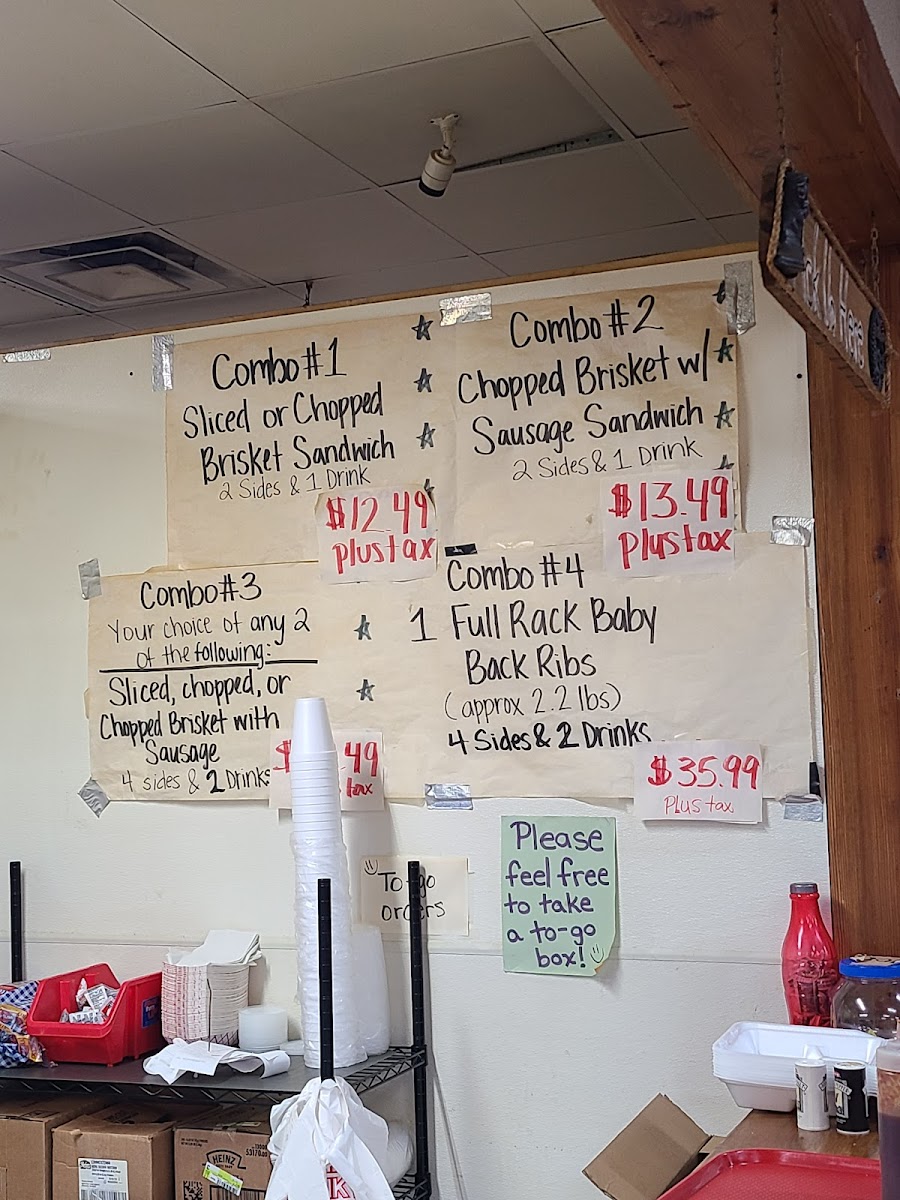 Combo #1
Sliced or Chopped
Brisket Sandwich
2 Sides & 1 Drink
$12.49
plus tax
Combo #2
Chopped Brisket w/
Sausage Sandwich
2 Sides & 1 Drink
$13.49
plus tax
Combo #3
Your choice of any 2
of the following:
Sliced, chopped, or
Chopped Brisket with
Sausage
4 sides & 2 Drinks
$ .49
tax
Combo #4
1 Full Rack Baby
Back Ribs
(approx 2.2 lbs)
4 Sides & 2 Drinks
$35.99
Plus tax
To-go
orders
Please
feel free
to take
a to-go
box!
Here
HEINZ